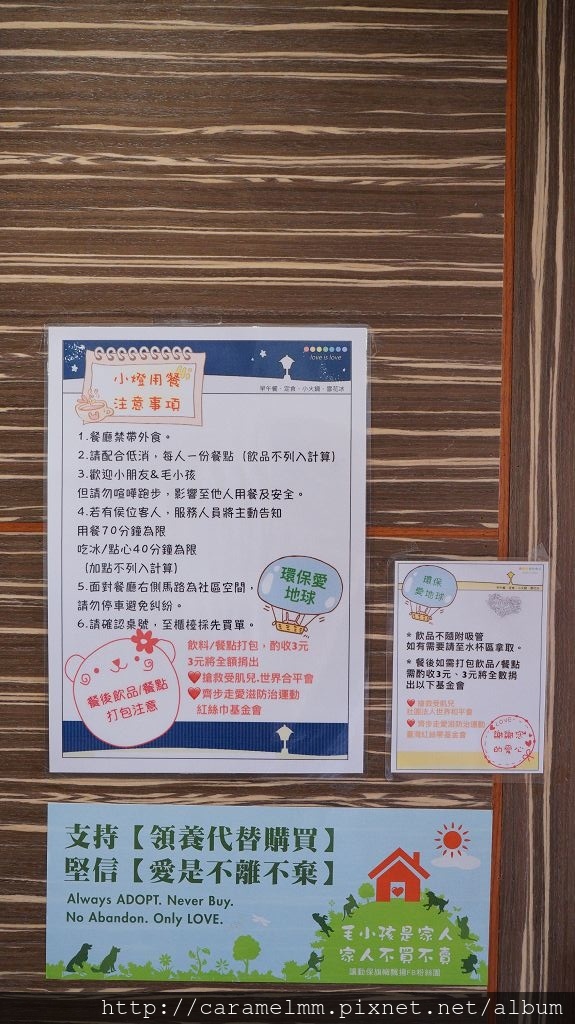 love is love
早午餐．定食．小火鍋．雪花冰
小燈用餐
注意事項
1.餐廳禁帶外食。
2.請配合低消，每人一份餐點（飲品不列入計算）
3.歡迎小朋友&毛小孩
但請勿喧嘩跑步，影響至他人用餐及安全。
4.若有侯位客人，服務人員將主動告知
用餐70分鐘為限
吃冰/點心40分鐘為限
（加點不列入計算）
5.面對餐廳右側馬路為社區空間，
請勿停車避免糾紛。
6.請確認桌號，至櫃檯採先買單。
環保愛
地球
飲料/餐點打包，酌收3元
3元將全額捐出
❤搶救受肌兒.世界合平會
❤齊步走愛滋防治運動
紅絲巾基金會
餐後飲品/餐點
打包注意
環保
愛地球
* 飲品不隨附吸管
如有需要請至水杯區拿取。
* 餐後如需打包飲品/餐點
需酌收3元、3元將全數捐
出以下基金會
❤搶救受肌兒
社團法人世界和平會
❤齊步走愛滋防治運動
臺灣紅絲帶基金會
LOVE
謝謝您
的愛心
支持【領養代替購買】
堅信【愛是不離不棄】
Always ADOPT. Never Buy.
No Abandon. Only LOVE.
毛小孩是家人
家人不買不賣
讓動保旗幟飄揚FB粉絲團
http://caramelmm.pixnet.net/album